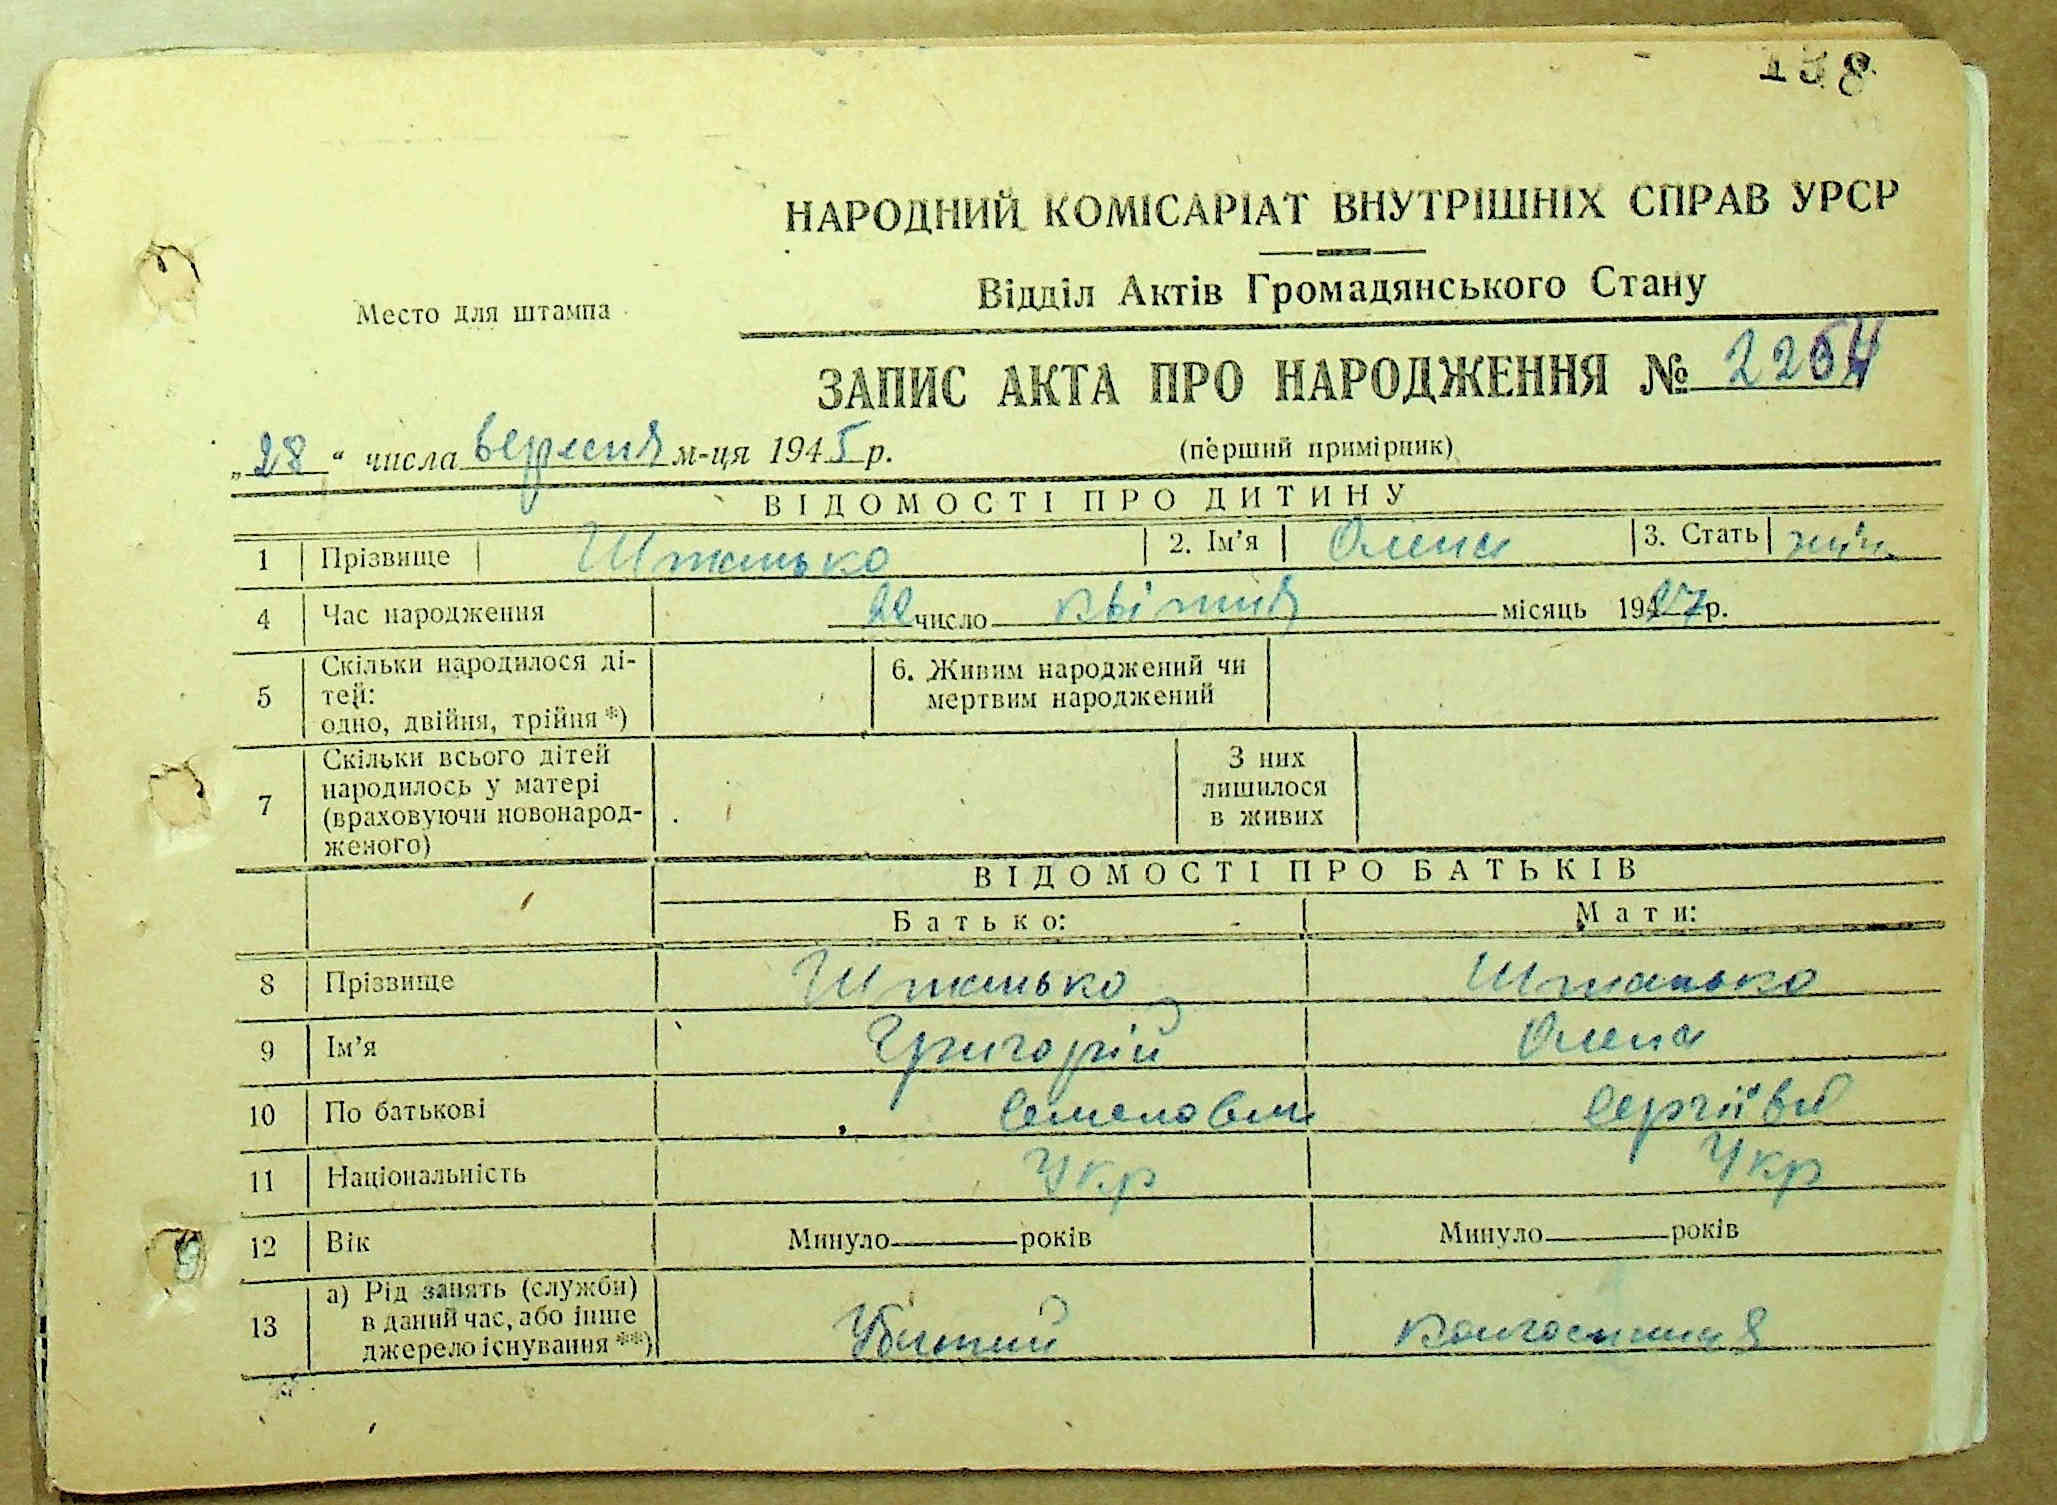 138
НАРОДНИЙ КОМІСАРІАТ ВНУТРІШНІХ СПРАВ УРСР
Відділ Актів Громадянського Стану
Место для штампа
ЗАПИС АКТА ПРО НАРОДЖЕННЯ № 2254
„28“ числа вересня м-ця 1945 р.
(перший примірник)
ВІДОМОСТІ ПРО ДИТИНУ
1 Прізвище Штанько 2. Ім'я Олена 3. Стать жін.
4 Час народження 22 число квітня місяць 1927 р.
5 Скільки народилося ді-
тей:
одно, двійня, трійня *)
6. Живим народжений чи
мертвим народжений
7 Скільки всього дітей
народилось у матері
(враховуючи новонарод-
женого)
З них
лишилося
в живих
ВІДОМОСТІ ПРО БАТЬКІВ
Батько: Мати:
8 Прізвище Штанько Штанько
9 Ім'я Григорій Олена
10 По батькові Семенович Сергіївна
11 Національність Укр Укр
12 Вік Минуло років Минуло років
13 а) Рід занять (служби)
в даний час, або інше
джерело існування **)
Убитий колгоспниця